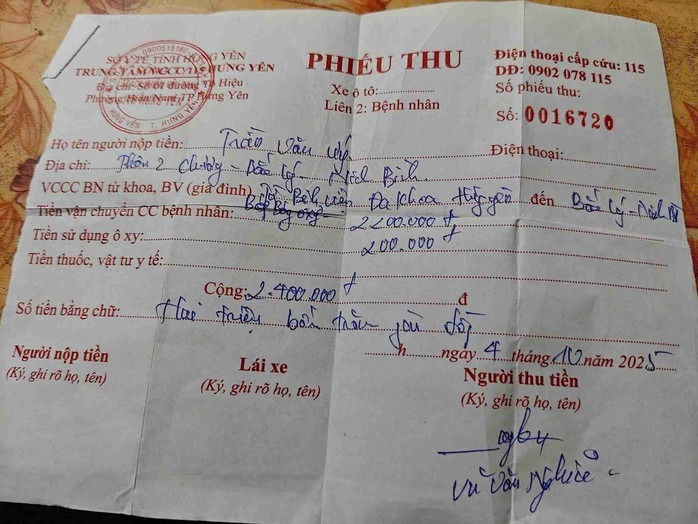 SỞ Y TẾ TỈNH HƯNG YÊN
TRUNG TÂM VCCC 115 HƯNG YÊN
Địa chỉ: Số 01 đường Tô Hiệu
Phường Hiến Nam, TP Hưng Yên
PHIẾU THU
Xe ô tô:
Liên 2: Bệnh nhân
Điện thoại cấp cứu: 115
DĐ: 0902 078 115
Số phiếu thu:
Số: 0016720
Họ tên người nộp tiền: Trần Văn
Điện thoại:
Địa chỉ: Thôn 2 - Bắc Lý - Ninh Bình
VCCC BN từ khoa, BV (gia đình) Từ Bệnh viện Đa khoa Hưng Yên đến Bắc Lý - Ninh
Tiền vận chuyển CC bệnh nhân: 2200.000 đ
Tiền sử dụng ô xy: 200.000 đ
Tiền thuốc, vật tư y tế:
Cộng: 2.400.000 đ đ
Số tiền bằng chữ: Hai triệu bốn trăm đồng
h ngày 4 tháng 10 năm 2025
Người nộp tiền
(Ký, ghi rõ họ, tên)
Lái xe
(Ký, ghi rõ họ, tên)
Người thu tiền
(Ký, ghi rõ họ, tên)
Vũ Văn